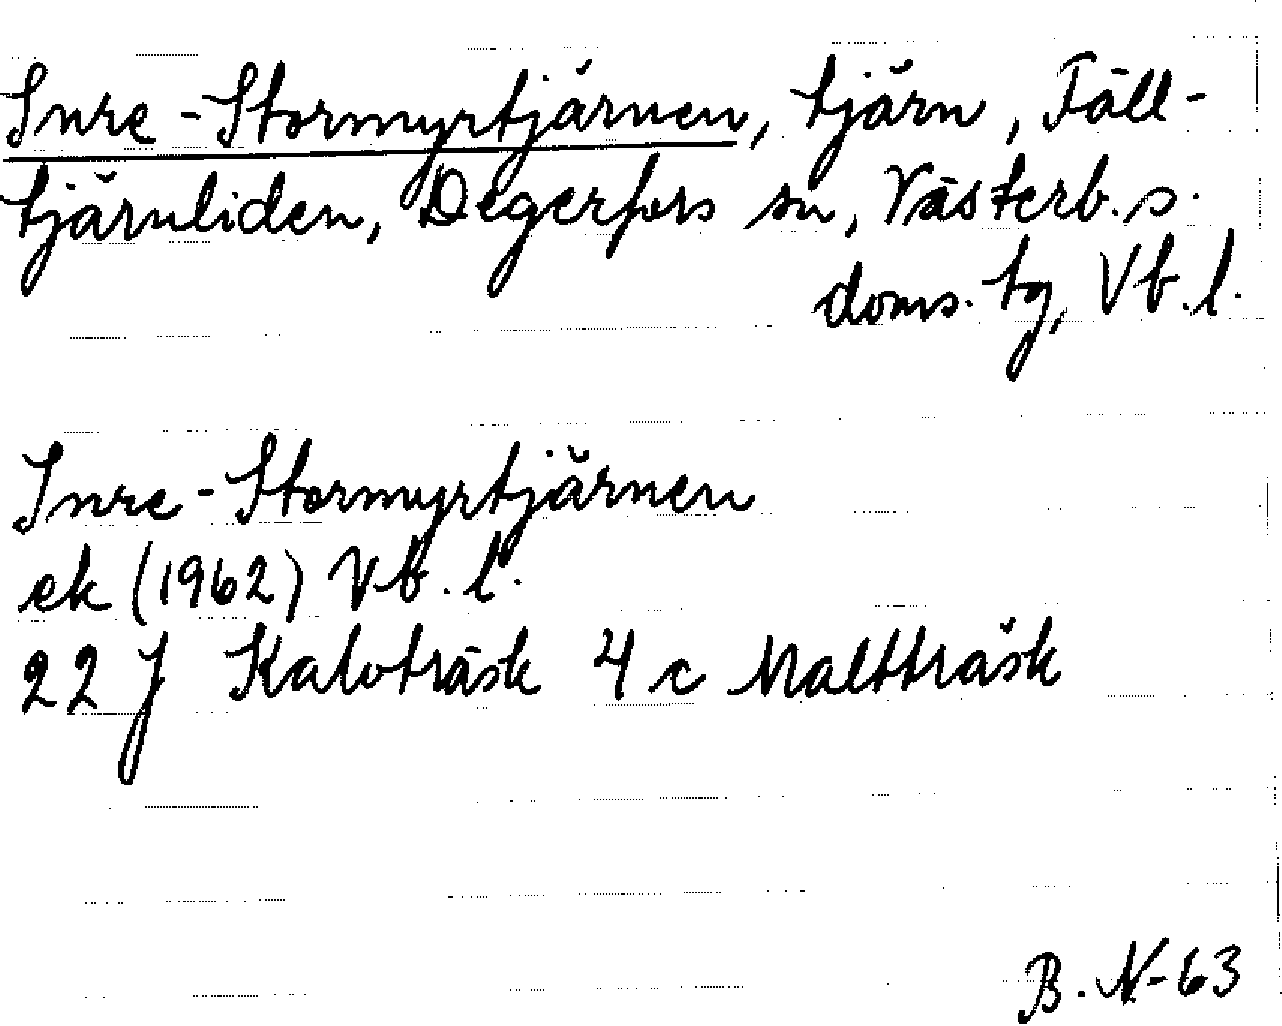 Inre-Stormyrtjärnen, tjärn, Fäll-
tjärnliden, Degerfors sn, Västerb. s.
doms. tg, Vb. l.
Inre-Stormyrtjärnen
ek (1962) Vb. l.
22 J Kalvträsk 4 c Maltträsk
B. N-63